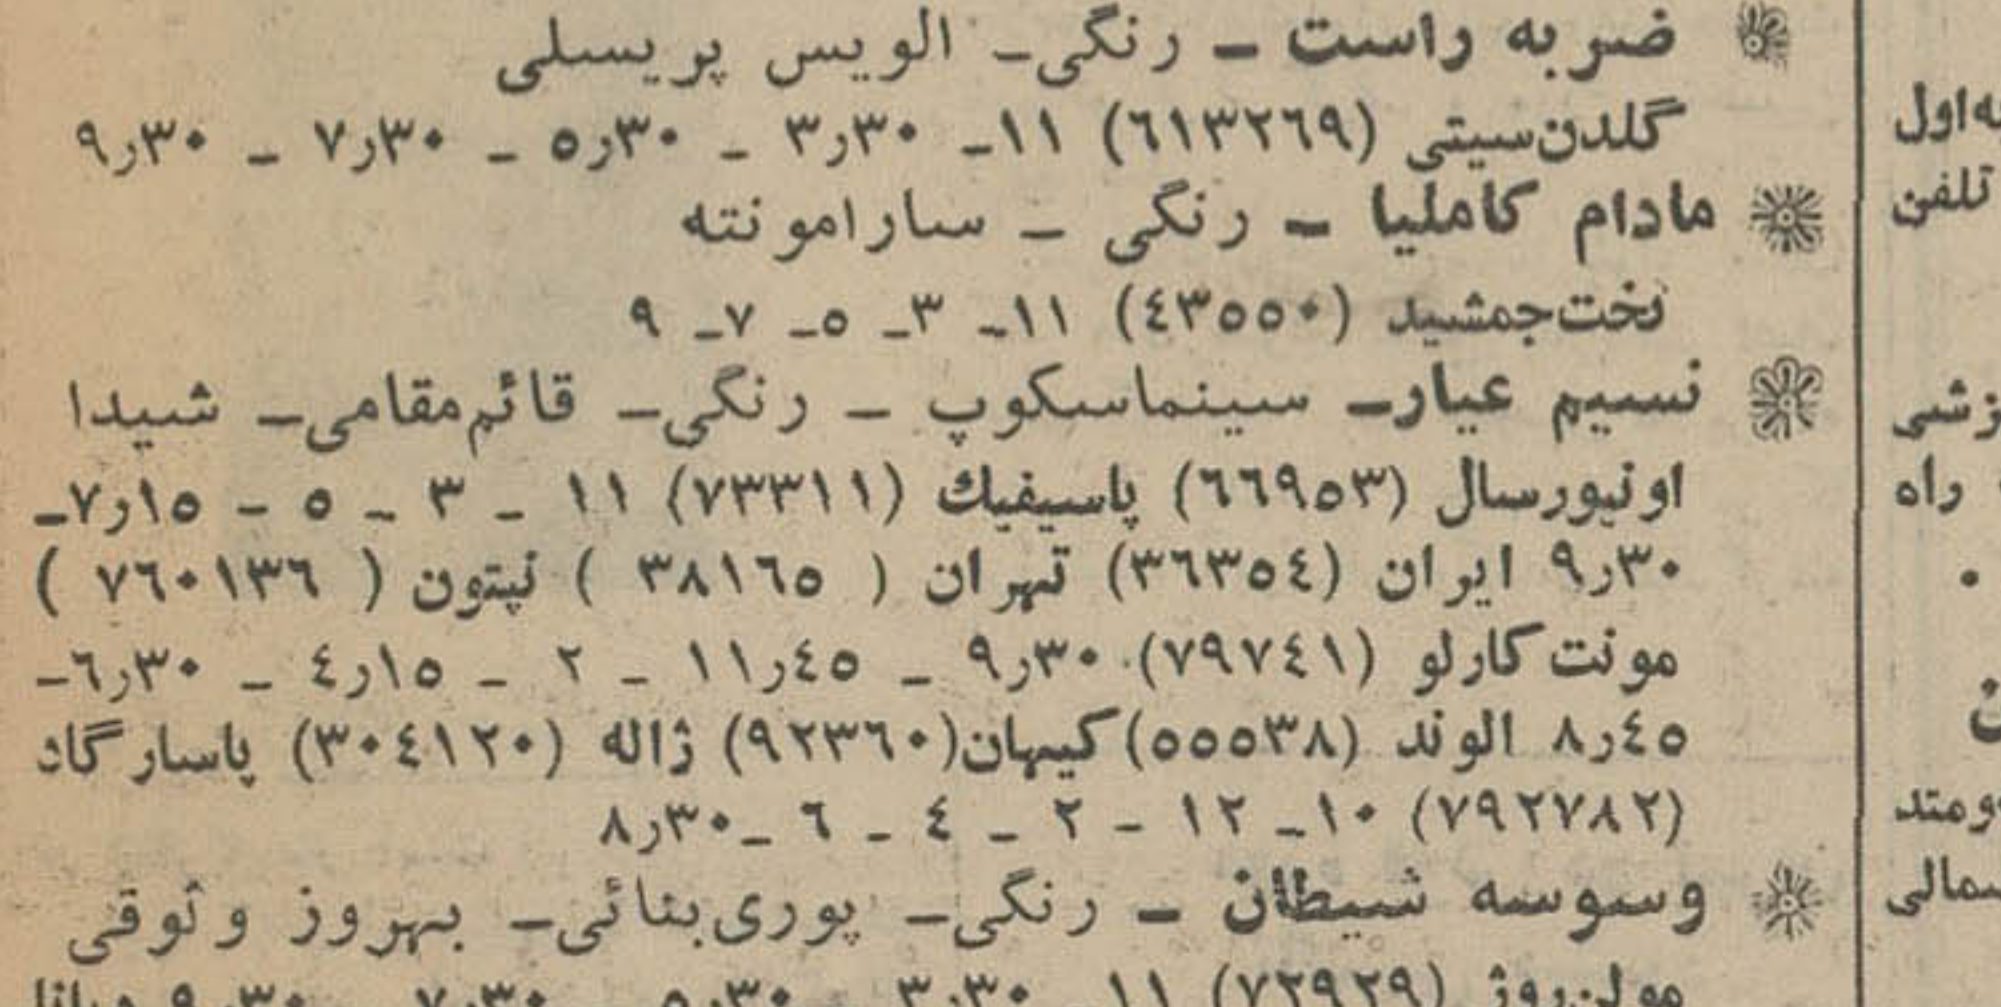 ضربه راست ـ رنگی ـ الویس پریسلی
گلدن‌سیتی (٦١٣٢٦٩) ١١ـ ٣٠ر٣ ـ ٣٠ر٥ ـ ٣٠ر٧ ـ ٣٠ر٩
مادام کاملیا ـ رنگی ـ سارامونته
تخت‌جمشید (٤٣٥٥٠) ١١ـ ٣ـ ٥ـ ٧ـ ٩
نسیم عیارـ سینماسکوپ ـ رنگی ـ قائم‌مقامی ـ شیدا
اونیورسال (٦٦٩٥٣) پاسیفیك (٧٣٣١١) ١١ ـ ٣ ـ ٥ ـ ١٥ر٧ـ
٣٠ر٩ ایران (٣٦٣٥٤) تهران ( ٣٨١٦٥ ) نپتون ( ٧٦٠١٣٦ )
مونت‌کارلو (٧٩٧٤١) ٣٠ر٩ ـ ٤٥ر١١ ـ ٢ ـ ١٥ر٤ ـ ٣٠ر٦ـ
٤٥ر٨ الوند (٥٥٥٣٨) کیهان (٩٢٣٦٠) ژاله (٣٠٤١٢٠) پاسارگاد
(٧٩٢٧٨٢) ١٠ـ ١٢ ـ ٢ ـ ٤ ـ ٦ ـ ٣٠ر٨
وسوسه شیطان ـ رنگی ـ پوری‌بنائی ـ بهروز وثوقی
مولن‌روژ (٧٢٩٢٩) ١١ ـ ٣٠ر٣ ـ ٣٠ر٥ ـ ٣٠ر٧ ـ ٣٠ر٩
تلفن
راه